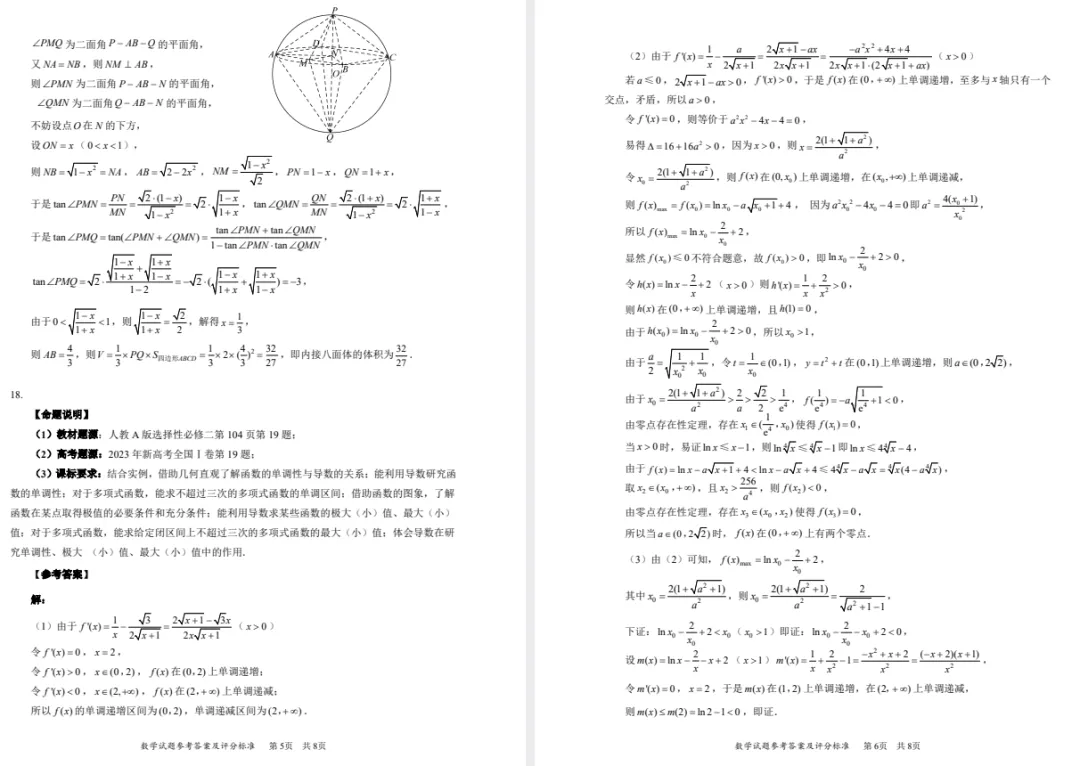 P
D
A
N
C
M
B
O
Q
∠PMQ 为二面角 P－AB－Q 的平面角，
又 NA＝NB，则 NM ⊥ AB，
则 ∠PMN 为二面角 P－AB－N 的平面角，
∠QMN 为二面角 Q－AB－N 的平面角，
不妨设点 O 在 N 的下方，
设 ON＝x（0＜x＜1），
则 NB＝√(1－x²)＝NA，AB＝√(2－2x²)，NM＝√(1－x²)/√2，PN＝1－x，QN＝1＋x，
于是 tan∠PMN＝PN/MN＝√2·(1－x)/√(1－x²)＝√2·√((1－x)/(1＋x))，tan∠QMN＝QN/MN＝√2·(1＋x)/√(1－x²)＝√2·√((1＋x)/(1－x))，
于是 tan∠PMQ＝tan(∠PMN＋∠QMN)＝(tan∠PMN＋tan∠QMN)/(1－tan∠PMN·tan∠QMN)，
tan∠PMQ＝√2·(√((1－x)/(1＋x))＋√((1＋x)/(1－x)))/(1－2)＝－√2·(√((1－x)/(1＋x))＋√((1＋x)/(1－x)))＝－3，
由于 0＜√((1－x)/(1＋x))＜1，则 √((1－x)/(1＋x))＝√2/2，解得 x＝1/3，
则 AB＝4/3，则 V＝1/3×PQ×S四边形ABCD＝1/3×2×(4/3)²＝32/27，即内接八面体的体积为 32/27．
18.
【命题说明】
（1）教材题源：人教 A 版选择性必修二第 104 页第 19 题；
（2）高考题源：2023 年新高考全国Ⅰ卷第 19 题；
（3）课标要求：结合实例，借助几何直观了解函数的单调性与导数的关系；能利用导数研究函
数的单调性；对于多项式函数，能求不超过三次的多项式函数的单调区间；借助函数的图象，了解
函数在某点取得极值的必要条件和充分条件；能利用导数求某些函数的极大（小）值、最大（小）
值；对于多项式函数，能求给定闭区间上不超过三次的多项式函数的最大（小）值；体会导数在研
究单调性、极大 （小）值、最大（小）值中的作用．
【参考答案】
解：
（1）由于 f'(x)＝1/x－√3/(2√(x＋1))＝(2√(x＋1)－√3x)/(2x√(x＋1))（x＞0）
令 f'(x)＝0，x＝2，
令 f'(x)＞0，x∈(0，2)，f(x) 在 (0，2) 上单调递增；
令 f'(x)＜0，x∈(2,＋∞)，f(x) 在 (2，＋∞) 上单调递减；
所以 f(x) 的单调递增区间为 (0，2)，单调递减区间为 (2，＋∞)．
数学试题参考答案及评分标准 第 5页 共 8页
（2）由于 f'(x)＝1/x－a/(2√(x＋1))＝(2√(x＋1)－ax)/(2x√(x＋1))＝(－a²x²＋4x＋4)/(2x√(x＋1)·(2√(x＋1)＋ax))（x＞0）
若 a≤0，2√(x＋1)－ax＞0，f'(x)＞0，于是 f(x) 在 (0，＋∞) 上单调递增，至多与 x 轴只有一个
交点，矛盾，所以 a＞0，
令 f'(x)＝0，则等价于 a²x²－4x－4＝0，
易得 Δ＝16＋16a²＞0，因为 x＞0，则 x＝2(1＋√(1＋a²))/a²，
令 x₀＝2(1＋√(1＋a²))/a²，则 f(x) 在 (0,x₀) 上单调递增，在 (x₀,＋∞) 上单调递减，
则 f(x)max＝f(x₀)＝ln x₀－a√(x₀＋1)＋4，因为 a²x₀²－4x₀－4＝0 即 a²＝4(x₀＋1)/x₀²，
所以 f(x)max＝ln x₀－2/x₀＋2，
显然 f(x₀)≤0 不符合题意，故 f(x₀)＞0，即 ln x₀－2/x₀＋2＞0，
令 h(x)＝ln x－2/x＋2（x＞0）则 h'(x)＝1/x＋2/x²＞0，
则 h(x) 在 (0，＋∞) 上单调递增，且 h(1)＝0，
由于 h(x₀)＝ln x₀－2/x₀＋2＞0，所以 x₀＞1，
由于 a/2＝√(1/x₀²＋1/x₀)，令 t＝1/x₀∈(0，1)，y＝t²＋t 在 (0，1) 上单调递增，则 a∈(0，2√2)，
由于 x₀＝2(1＋√(1＋a²))/a²＞2/a＞√2/2＞1/e⁴，f(1/e⁴)＝－a√(1/e⁴＋1)＜0，
由零点存在性定理，存在 x₁∈(1/e⁴，x₀) 使得 f(x₁)＝0，
当 x＞0 时，易证 ln x≤x－1，则 ln⁴√x≤⁴√x－1 即 ln x≤4⁴√x－4，
由于 f(x)＝ln x－a√(x＋1)＋4＜ln x－a√x＋4≤4⁴√x－a√x＝⁴√x(4－a⁴√x)，
取 x₂∈(x₀，＋∞)，且 x₂＞256/a⁴，则 f(x₂)＜0，
由零点存在性定理，存在 x₃∈(x₀，x₂) 使得 f(x₃)＝0，
所以当 a∈(0，2√2) 时，f(x) 在 (0，＋∞) 上有两个零点．
（3）由（2）可知，f(x)max＝ln x₀－2/x₀＋2，
其中 x₀＝2(1＋√(a²＋1))/a²，则 x₀＝2(1＋√(a²＋1))/a²＝2/(√(a²＋1)－1)，
下证：ln x₀－2/x₀＋2＜x₀（x₀＞1）即证：ln x₀－2/x₀－x₀＋2＜0，
设 m(x)＝ln x－2/x－x＋2（x＞1）m'(x)＝1/x＋2/x²－1＝(－x²＋x＋2)/x²＝(－x＋2)(x＋1)/x²，
令 m'(x)＝0，x＝2，于是 m(x) 在 (1，2) 上单调递增，在 (2，＋∞) 上单调递减，
则 m(x)≤m(2)＝ln 2－1＜0，即证．
数学试题参考答案及评分标准 第 6页 共 8页